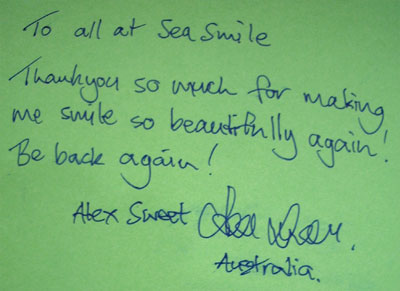 To all at Sea Smile
Thankyou so much for making
me smile so beautifully again!
Be back again!
Alex Sweet
Australia.